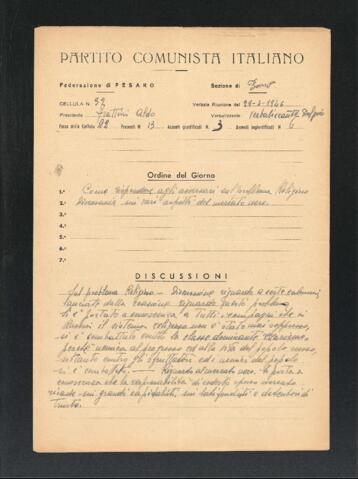 PARTITO COMUNISTA ITALIANO
Federazione di PESARO Sezione di
CELLULA N. 92 Verbale Riunione del 1946
Presidente Aldo Verbalizzante
Forza della Cellula 22 Presenti N. 13 Assenti giustificati N. 3 Assenti ingiustificati N. 6
Ordine del Giorno
1.° Come rispondere agli avversari sul problema Religioso
2.° Discussione sui vari aspetti del mercato nero.
3.°
4.°
5.°
6.°
7.°
DISCUSSIONI
Sul problema Religioso — Discussione riguardo a certe calunnie
lanciate dalla reazione riguardo questo problema
si è portato a conoscenza a tutti i compagni che in
il sistema religioso non è stato mai soppresso,
si è combattuto contro la classe dominante
perché nemica al progresso ed alla vita del popolo russo,
contro gli sfruttatori ed i nemici del popolo
si è — Riguardo al mercato nero si porta a
conoscenza che la responsabilità di codesto mercato
ricade sui grandi capitalisti, sui latifondisti e detentori di